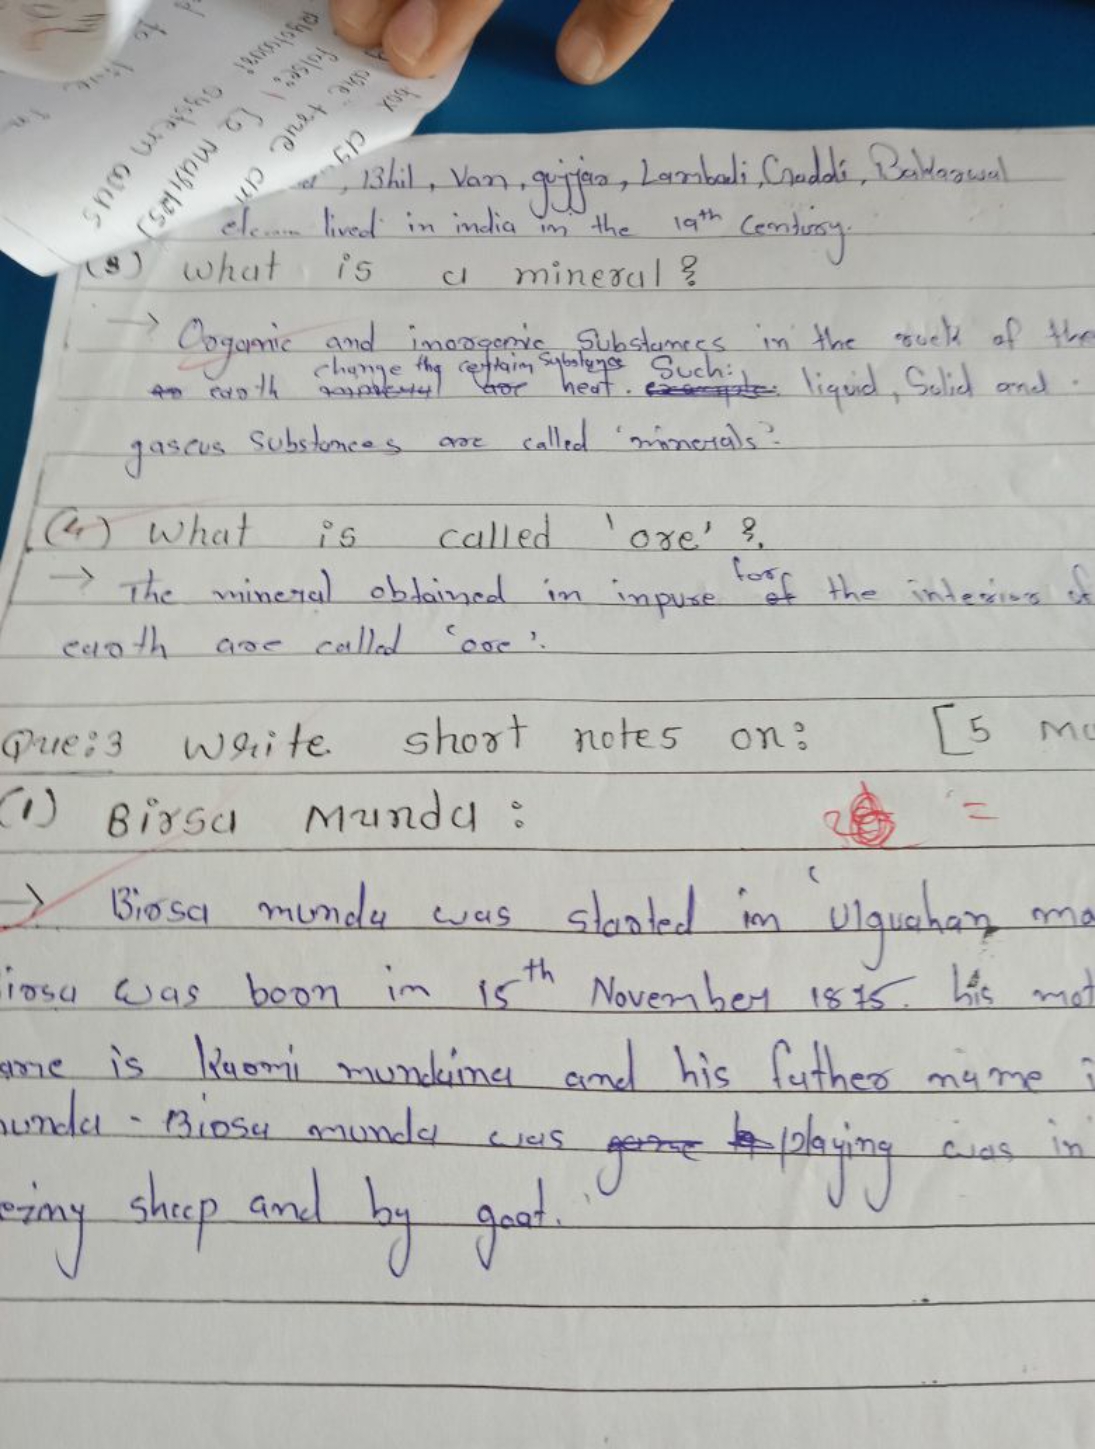 box
are true
false: [2 marks]
system was
to
, Bhil, Van, gujjar, Lambadi, Gaddi, Bakarwal
etc..... lived in india in the 19th Century.
(3) What is a mineral?
→ Organic and inorganic Substances in the rock of the
change the certain Substance Such:
earth heat. liquid, Solid and
gaseus Substances are called 'minerals'.
(4) What is called 'ore'?
→ The mineral obtained in inpure for the interior of
earth are called 'ore'.
Que:3 Write short notes on: [5
(1) Birsa Munda: =
→ Birsa munda was started in 'Ulguahan
irsa was boon in 15th November 1875. his mot
ame is Karmi mundaina and his father name i
unda - Birsa munda was playing was in
sheep and by goat.